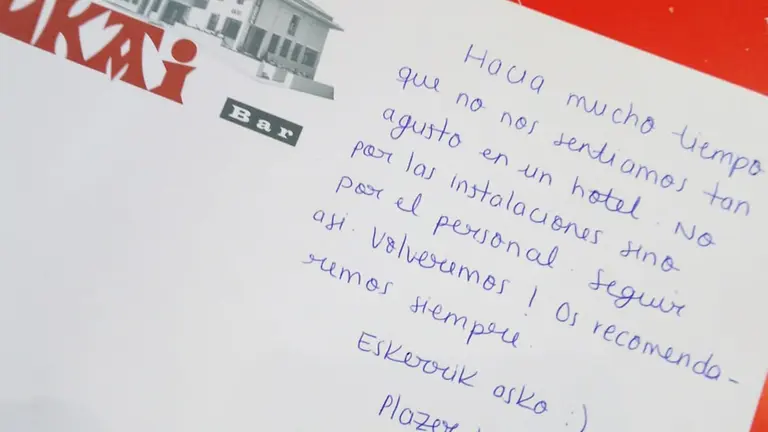 KAi
Bar
Hacia mucho tiempo
que no nos sentiamos tan
agusto en un hotel. No
por las instalaciones sino
por el personal. Seguir
asi. Volveremos! Os recomenda-
remos siempre.
Eskerrik asko :)
Plazer